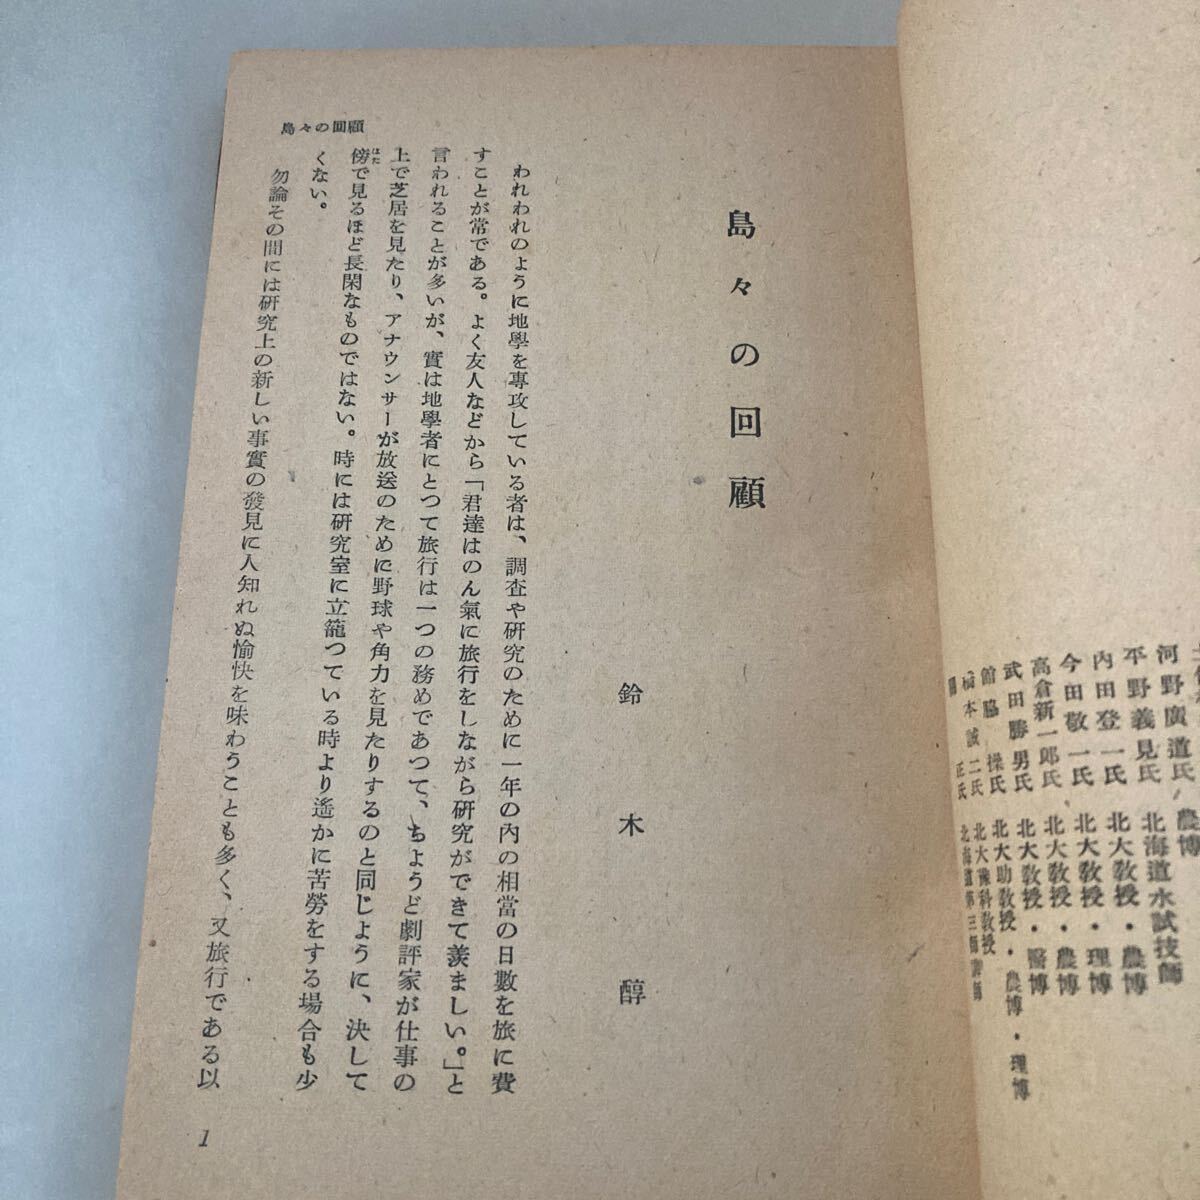 土
河野廣道氏 農博
平野義見氏 北海道水試技師
内田登一氏 北大教授・農博
今田敬一氏 北大教授・理博
高倉新一郎氏 北大教授・農博
武田勝男氏 北大教授・醫博
館脇操氏 北大助教授・農博・理博
橋本誠二氏 北大豫科教授
正氏 北海道第三師範
島々の回顧
鈴木醇
われわれのように地學を專攻している者は、調査や研究のために一年の內の相當の日數を旅に費
すことが常である。よく友人などから「君達はのん氣に旅行をしながら研究ができて羨ましい。」と
言われることが多いが、實は地學者にとつて旅行は一つの務めであつて、ちようど劇評家が仕事の
上で芝居を見たり、アナウンサーが放送のために野球や角力を見たりするのと同じように、決して
傍で見るほど長閑なものではない。時には研究室に立籠つている時より遙かに苦勞をする場合も少
はた
くない。
勿論その間には研究上の新しい事實の發見に人知れぬ愉快を味わうことも多く、又旅行である以
島々の回顧
1